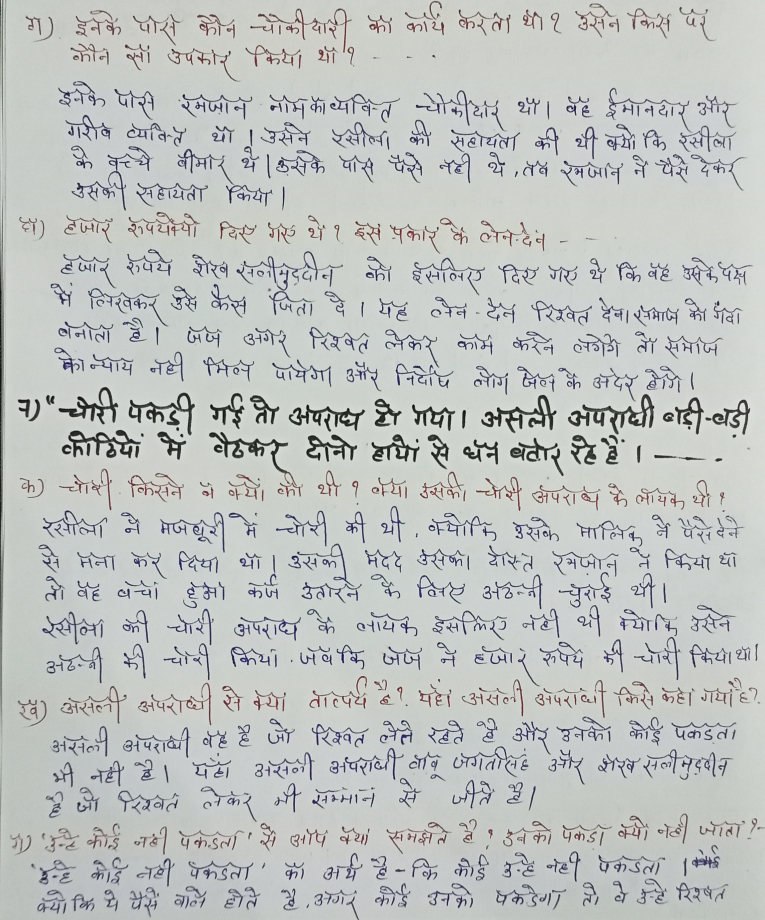 ग) इनके पास कौन चौकीदारी का कार्य करता था? उसने किस पर
कौन सा उपकार किया था? - - .
इनके पास रमजान नामका व्यक्ति चौकीदार था। वह ईमानदार और
गरीब व्यक्ति था। उसने रसीला की सहायता की थी क्यो कि रसीला
के बच्चे बीमार थे। उसके पास पैसे नही थे, तब रमजान ने पैसे देकर
उसकी सहायता किया।
घ) हजार रुपये क्यो दिए गए थे? इस प्रकार के लेन-देन - -
हजार रुपये शेख सलीमुद्दीन को इसलिए दिए गए थे कि वह उसके पक्ष
में लिखकर उसे केस जिता दे। यह लेन-देन रिश्वत देना समाज को गंदा
बनाता है। जज अगर रिश्वत लेकर काम करने लगेंगे तो समाज
को न्याय नही मिल पायेगा और निर्दोष लोग जेल के अंदर होंगे।
7) "चोरी पकड़ी गई तो अपराध हो गया। असली अपराधी बड़ी-बड़ी
कोठियों में बैठकर दोनो हाथों से धन बटोर रहे हैं। ——.
क) चोरी किसने व क्यों की थी? क्या उसकी चोरी अपराध के लायक थी?
रसीला ने मजबूरी में चोरी की थी, क्योकि उसके मालिक ने पैसे देने
से मना कर दिया था। उसकी मदद उसका दोस्त रमजान ने किया था
तो वह बचा हुआ कर्ज उतारने के लिए अठन्नी चुराई थी।
रसीला की चोरी अपराध के लायक इसलिए नही थी क्योकि उसने
अठन्नी की चोरी किया. जबकि जज ने हजार रुपये की चोरी किया था।
ख) असली अपराधी से क्या तात्पर्य है? यहां असली अपराधी किसे कहा गया है?
असली अपराधी वह है जो रिश्वत लेते रहते है और उनको कोई पकडता
भी नही है। यहाँ असली अपराधी बाबू जगतसिंह और शेख सलीमुद्दीन
है जो रिश्वत लेकर भी सम्मान से जीते है।
ग) 'उन्हे कोई नही पकडता' से आप क्या समझते है? उनको पकडा क्यो नही जाता?-
'उन्हे कोई नही पकडता' का अर्थ है - कि कोई उन्हे नही पकडता।
क्यो कि ये पैसे वाले होते है. अगर कोई उनको पकडेगा तो वे उन्हे रिश्वत